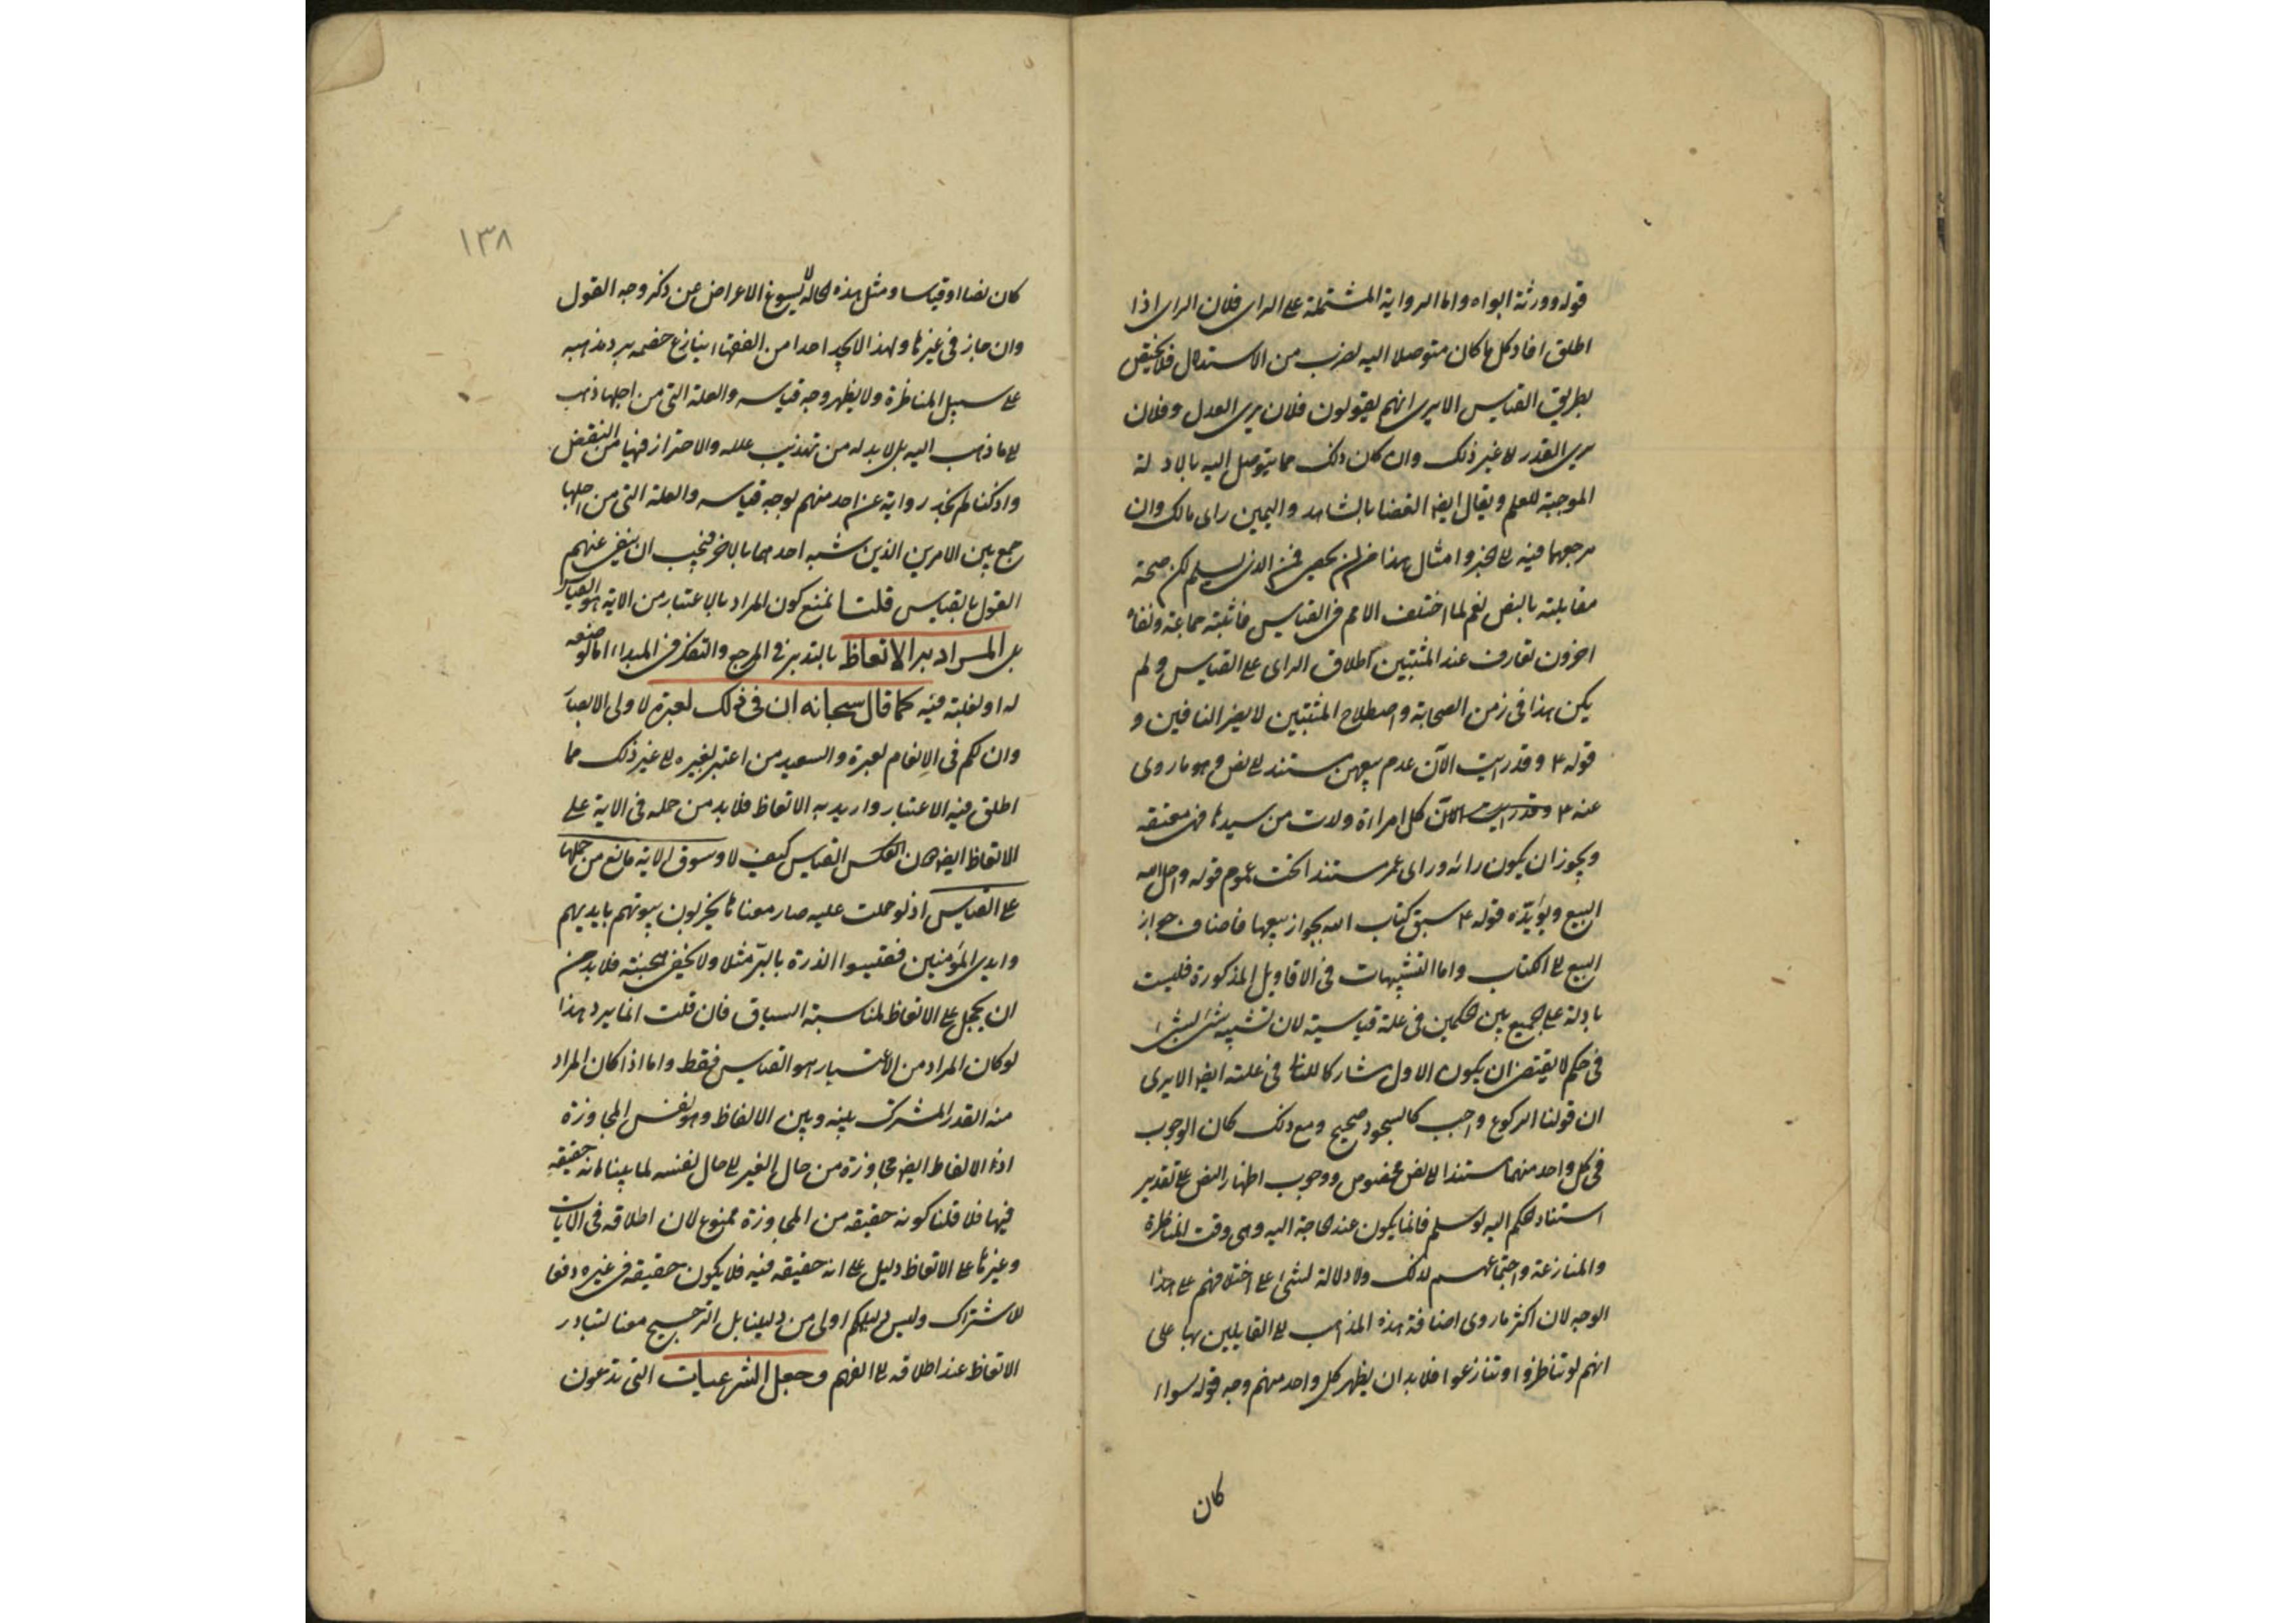 قوله وورثة ابواه واما الرواية المشتملة على الراى فلان الراى اذا
اطلق افاد كل ما كان متوصلا اليه لضرب من الاستدلال فلا يختص
بطريق القياس الا يرى انهم يقولون فلان يرى العدل وفلان
يرى القدر الى غير ذلك وان كان ذلك مما يتوصل اليه بالادلة
الموجبة للعلم ويقال ايضا القضا بالشاهد واليمين راى مالك وان
مرجعهما فيه الى الخبر وامثال هذا لن يحصى الذى يسلم لكن صحة
مقابلته بالنص نعم لما اختلف الامم فى القياس فاثبته جماعة ونفاه
اخرون تعارف عند المثبتين اطلاق الراى على القياس ولم
يكن هذا فى زمن الصحابة واصطلاح المثبتين لا يضر النافين و
قوله ٤ وقد رايت الآن عدم بيعهن مستند الى نص وهو ما روى
عنه ٤ وقد رايت الآن كل امراة ولدت من سيدها فهى معتقة
ويجوز ان يكون رائه وراى عمر مستندا تحت عموم قوله واحل الله
البيع ويؤيده قوله ٤ سبق كتاب الله بجواز بيعها فاضاف جواز
البيع الى الكتاب واما التشبيهات فى الاقاويل المذكورة فليست
بادلة على الجمع بين الحكمين فى علة قياسية لان تشبيه شئ بشئ
فى حكم لا يقتضى ان يكون الاول مشاركا للثانى فى علته ايضا الا يرى
ان قولنا الركوع واجب كالسجود صحيح ومع ذلك كان الوجوب
فى كل واحد منهما مستندا الى نص مخصوص ووجوب اظهار النص على تقدير
استناد الحكم اليه لو سلم فانما يكون عند الحاجة اليه وهى وقت المناظرة
والمنازعة واجتماعهم لذلك ولا دلالة لشئ على اختلافهم على هذا
الوجه لان اكثر ما روى اضافة هذه المذاهب الى القايلين بها على
انهم لو تناظروا وتنازعوا فلا بد ان يظهر كل واحد منهم وجه قوله سواء
كان
١٣٨
كان نصا او قياسا ومثل هذه الحالة لا يسوغ الاعراض عن ذكر وجه القول
وان جاز فى غيرها ولهذا لا يجد احدا من الفقهاء ينازع خصمه يرد مذهبه
على سبيل المناظرة ولا يظهر وجه قياسه والعلة التى من اجلها ذهب
الى ما ذهب اليه بل لا بد له من تهذيب علله والاحتراز فيها من النقض
واذ كنا لم نجد رواية عن احد منهم لوجه قياسه والعلة التى من اجلها
جمع بين الامرين الذين شبه احدهما بالاخر فيجب ان ينفى عنهم
القول بالقياس قلت نمنع كون المراد بالاعتبار من الاية هو القياس
بل المراد به الاتعاظ بالتدبر فى المرجع والتفكر فى المبداء اما لوضعه
له او لغلبته فيه كما قال سبحانه ان فى ذلك لعبرة لاولى الابصار
وان لكم فى الانعام لعبرة والسعيد من اعتبر بغيره الى غير ذلك مما
اطلق فيه الاعتبار واريد به الاتعاظ فلا بد من حمله فى الاية على
الاتعاظ ايضا القياس كيف لا وسوق الاية مانع من حملها
على القياس اذ لو حملت عليه صار معناها يخربون بيوتهم بايديهم
وايدى المؤمنين فقيسوا الذرة بالبر مثلا ولا يخفى فلا بد من
ان يحمل على الاتعاظ لمناسبة السياق فان قلت انما يرد هذا
لو كان المراد من الاعتبار هو القياس فقط واما اذا كان المراد
منه القدر المشترك بينه وبين الالفاظ وهو نفس المجاوزة
اذ الالفاظ ايضا مجاوزة من حال الغير الى حال نفسه لما بينا انه حقيقة
فيها فلا قلنا كونه حقيقة من المجاوزة ممنوع لان اطلاقه فى الايات
وغيرها على الاتعاظ دليل على انه حقيقة فيه فلا يكون حقيقة فى غيره دفعا
للاشتراك وليس دليلكم اولى من دليلنا بل الترجيح معنا لتبادر
الاتعاظ عند اطلاقه الى الفهم وجعل الشرعيات التى تدعون